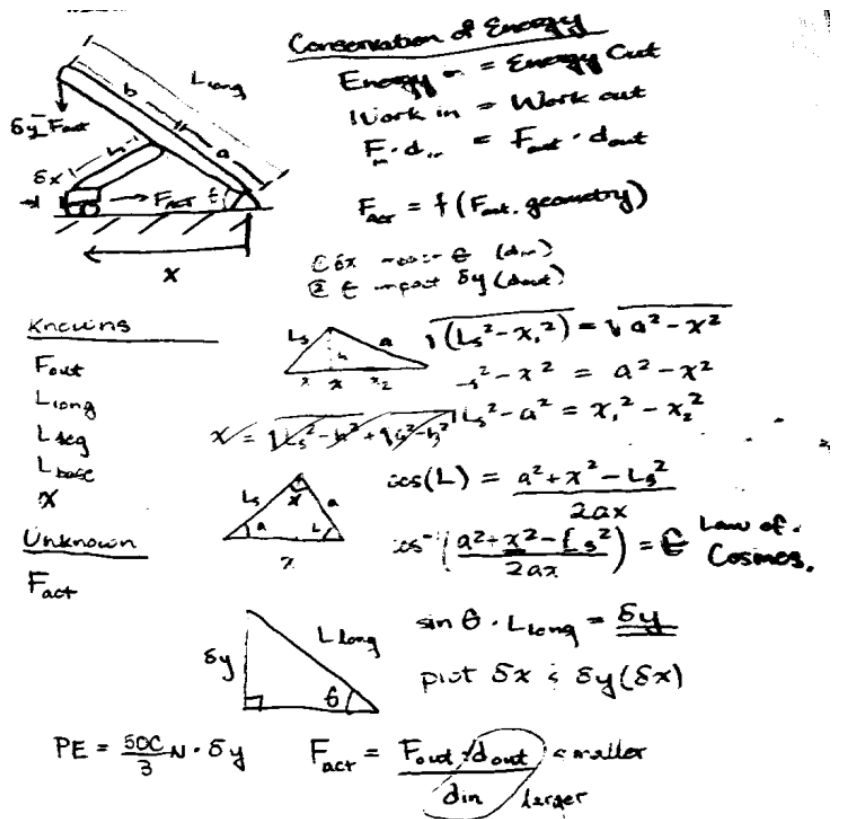 Conservation of Energy
Energy in = Energy Out
Work in = Work out
F_in · d_in = F_out · d_out
F_act = f (F_out, geometry)
L_long
b
a
h
δy F_out
δx
F_act
θ
x
① δx θ (d_in)
② θ impact δy (d_out)
Knowns
F_out
L_long
L_seg
L_base
x
Unknown
F_act
L_s
a
h
x
x_2
√(L_s² - x_1²) = √a² - x²
s² - x² = a² - x²
L_s² - a² = x_1² - x_2²
x = √L_s² - h² + √a² - h²
L_s
x
a
a
L
x
cos(L) = a² + x² - L_s² / 2ax
cos⁻¹(a² + x² - L_s² / 2ax) = θ
Law of Cosines.
δy
L_long
θ
sin θ · L_long = δy
plot δx & δy(δx)
PE = 500/3 N · δy
F_act = F_out · d_out / d_in
smaller
larger